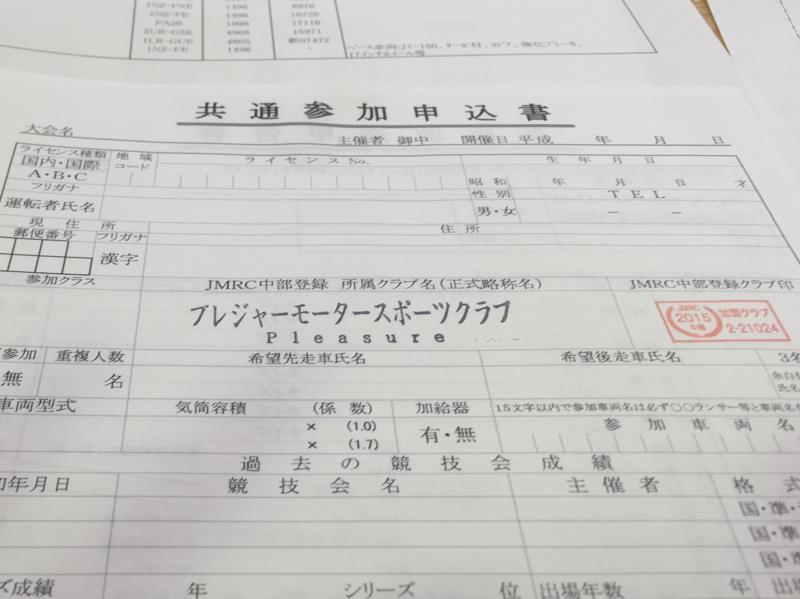 1NZ-FXE 1496 8976
1NZ-FE 1496 16720
FA20 1998 17116
2UR-GSE 4968 15971
1LR-GUE 4805 新07472
1NZ-FE 1496 -
ベース車両:JT-150、ターボ付、3ドア、強化ブレーキ、
17インチホイール等
共通参加申込書
大会名 主催者 御中 開催日 平成 年 月 日
ライセンス種類 地域 ライセンス No. 生年月日
国内・国際 コード
A・B・C 昭和 年 月 日 才
フリガナ 性別 TEL
運転者氏名 男・女 - -
現住所 住所
郵便番号 フリガナ
漢字
参加クラス JMRC中部登録 所属クラブ名(正式略称名) JMRC中部登録クラブ印
プレジャーモータースポーツクラブ
Pleasure
JMRC
2015 加盟クラブ
中部 2-21024
参加 重複人数 希望先走車氏名 希望後走車氏名 3名
無 名 余白
氏名
車両型式 気筒容積 (係数) 加給器 15文字以内で参加車両名は必ず〇〇ランサー等と車両名
× (1.0) 有・無 参加車両名
× (1.7)
過去の競技会成績
年月日 競技会名 主催者 格式
国・準・
国・準・
国・準・
ズ成績 年 シリーズ 位 出場年数 年 出場